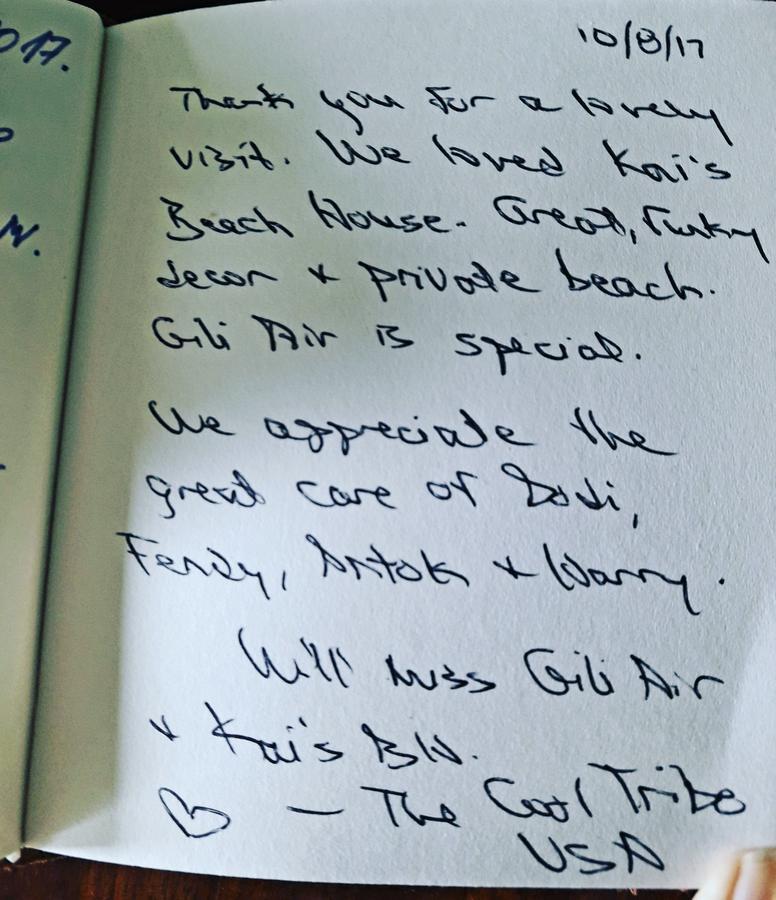 017.
10/8/17
Thank you for a lovely
visit. We loved Kai's
Beach House. Great, funky
decor & private beach.
Gili Air is special.
We appreciate the
great care of Dodi,
Fendy, Antok & Wanny.
Will miss Gili Air
& Kai's BH.
♡ — The Cool Tribe
USA